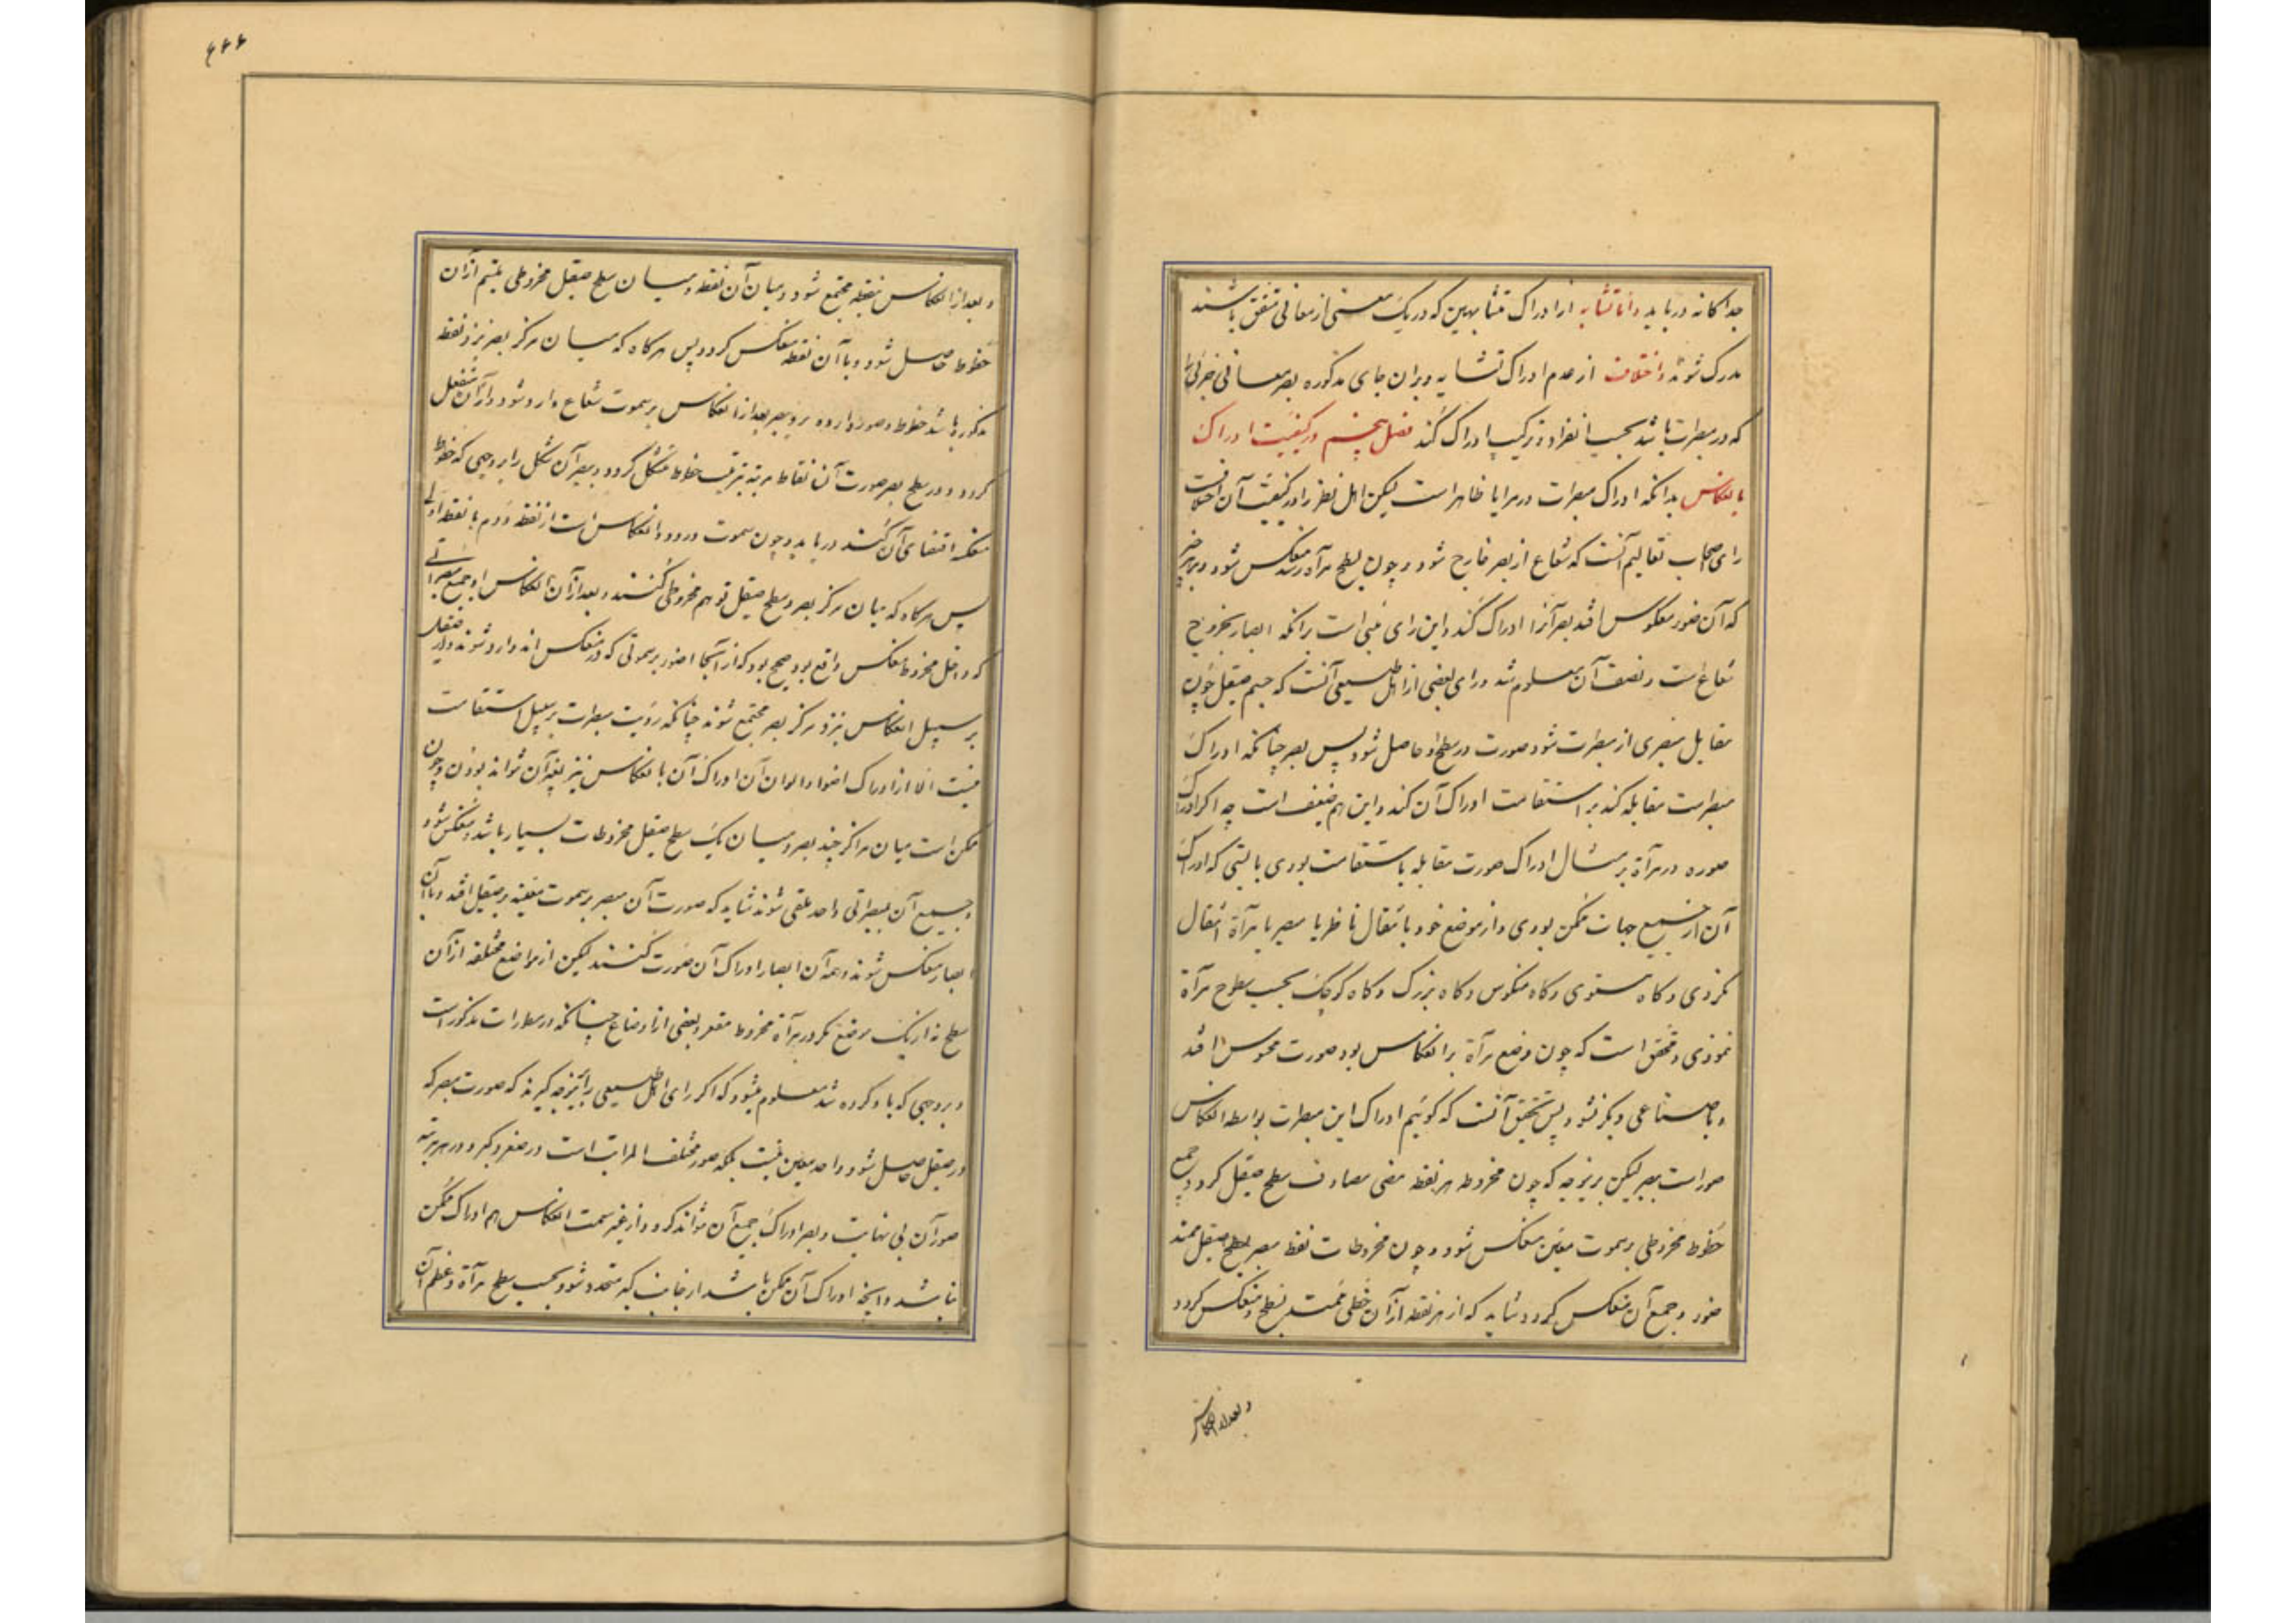 جداکانه دریابد و اما تشابه از ادراک متشابهین که در یک معنی از معانی متفق باشند
مدرک شوند و اختلاف از عدم ادراک تشابه و بران جای مذکوره بصر معانی جزئی را
که در مبصرات باشد بحسب انفراد و ترکیب ادراک کند فصل پنجم در کیفیت ادراک
بانعکاس بدانکه ادراک مبصرات در مرایا ظاهر است لیکن اهل نظر را در کیفیت آن اختلافست
رای اصحاب تعالیم آنست که شعاع از بصر خارج شود و چون بسطح مرآة رسد منعکس شود و بر هر چیز
که آن ضور معکوس افتد بصر آنرا ادراک کند و این رای مبنی است برانکه ابصار بخروج
شعاع است و ضعف آن معلوم شد و رای بعضی از اهل طبیعی آنست که جسم صقیل چون
مقابل مبصری از مبصرات شود صورت در سطح او حاصل شود پس بصر چنانکه ادراک
مبصرات مقابله کند بر استقامت ادراک آن کند و این هم ضعیف است چه اکر ادراک
صوره در مرآة بر مثال ادراک صورت مقابله باستقامت بودی بایستی که ادراک
آن از جمیع جهات ممکن بودی و از موضع خود بانتقال ناظر یا مبصر یا مرآة انتقال
نکردی و کاه مستوی و کاه منکوس و کاه بزرک و کاه کوچک بحسب سطوح مرآة
نمودی و محقق است که چون وضع مرآة بر انعکاس بود صورت محسوس افتد
و باوضاعی دیکر نشود پس تحقیق آنست که کوئیم ادراک این مبصرات بواسطه انعکاس
صور است ببصر لیکن برینوجه که چون مخروط هر نقطه مضی مصادف سطح صقیل کردد جمیع
خطوط مخروطی بر سموت معین منعکس شود و چون مخروطات نقط مبصر بسطح صقیل ممتد
ضور و جمع آن منعکس کردد شاید که از هر نقطه از آن خطی ممتد بسطح و منعکس کردد
و بعد از انعکاس
۶۶۶
و بعد از انعکاس بنقطه مجتمع شود و میان آن نقطه و میان سطح صقیل مخروطی ملتئم از آن
خطوط حاصل شود و با آن نقطه منعکس کردد پس هرکاه که میان مرکز بصر نیز و نقطه
مذکوره باشد خطوط و صور وارده بر و بصر بعد از انعکاس بر سموت شعاع وارد شود و از آن منفعل
کردد و در سطح بصر صورت آن نقاط مرتبه بترتیب خطوط متشکل کردد و بصر آن شکل را بر وجهی که خطوط
منعکسه اقتضای آن کنند دریابد و چون سموت ورود و انعکاس است از نقطه دوم با نقطه اولی
پس هرکاه که میان مرکز بصر و سطح صقیل توهم مخروطی کنند و بعد از آن انعکاس او جمیع مبصراتی
که داخل مخروط منعکس واقع بود صحیح بود که از آنجا اضور بر سموتی که در منعکس اند وارد شوند و از صقیل
بر سبیل انعکاس نزد مرکز بصر مجتمع شوند چنانکه رؤیت مبصرات بر سبیل استقامت
نیست الا از ادراک اضوا و الوان آن ادراک آن بانعکاس نیز بغیر آن نتواند بودن و چون
ممکن است میان مراکز چند بصر و میان یک سطح صقیل مخروطات بسیار باشد و منعکس شود
و جمیع آن بمبصراتی واحد ملتقی شوند شاید که صورت آن مبصر بر سموت معینه بر صقیل افتد و با آن
ابصار منعکس شوند و همه آن ابصار ادراک آن صورت کنند لیکن از مواضع مختلفه از آن
سطح نه از یک موضع مکر در مرآة مخروط مقعر و بعضی از اوضاع چنانکه در مطولات مذکور است
و بر وجهی که یاد کرده شد معلوم میشود که اکر رای اهل طبیعی را برینوجه کیرند که صورت مبصر که
در صقیل حاصل شود واحد معین نیست بلکه صور مختلف المراتب است در صغر و کبر و در هر مرتبه
صور آن بی نهایت و بصر ادراک جمیع آن نتواند کرد و از غیر سمت انعکاس هم ادراک ممکن
نباشد و آنچه ادراک آن ممکن باشد از جانب کبر متحدد شود بحسب سطح مرآة و عظم آن